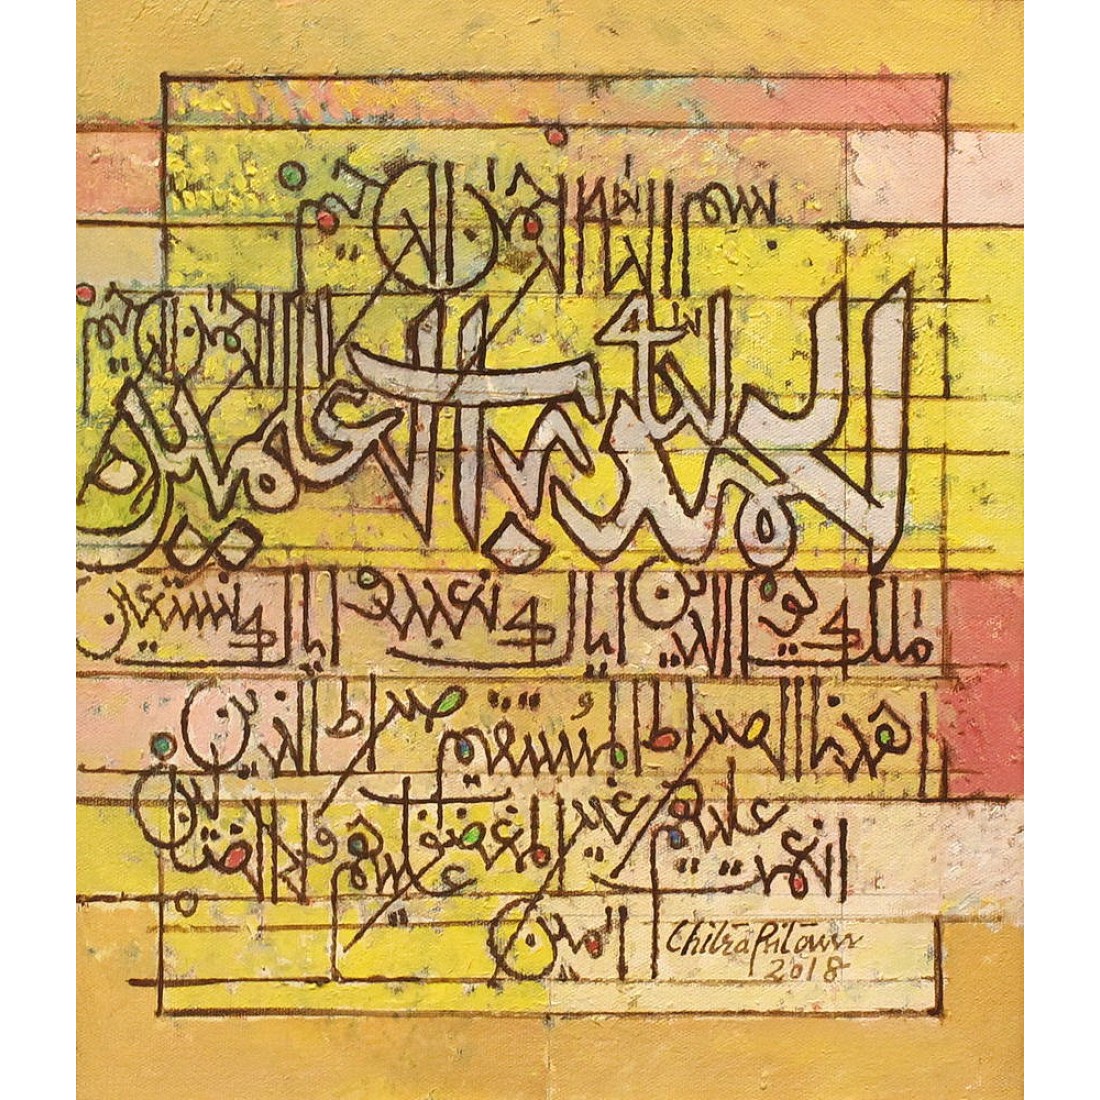 بسم الله الرحمن الرحيم
الحمد لله رب العلمين
الرحمن الرحيم
ملك يوم الدين إياك نعبد وإياك نستعين
اهدنا الصراط المستقيم صراط الذين
أنعمت عليهم غير المغضوب عليهم ولا الضالين
امين
Chitra Pritam
2018